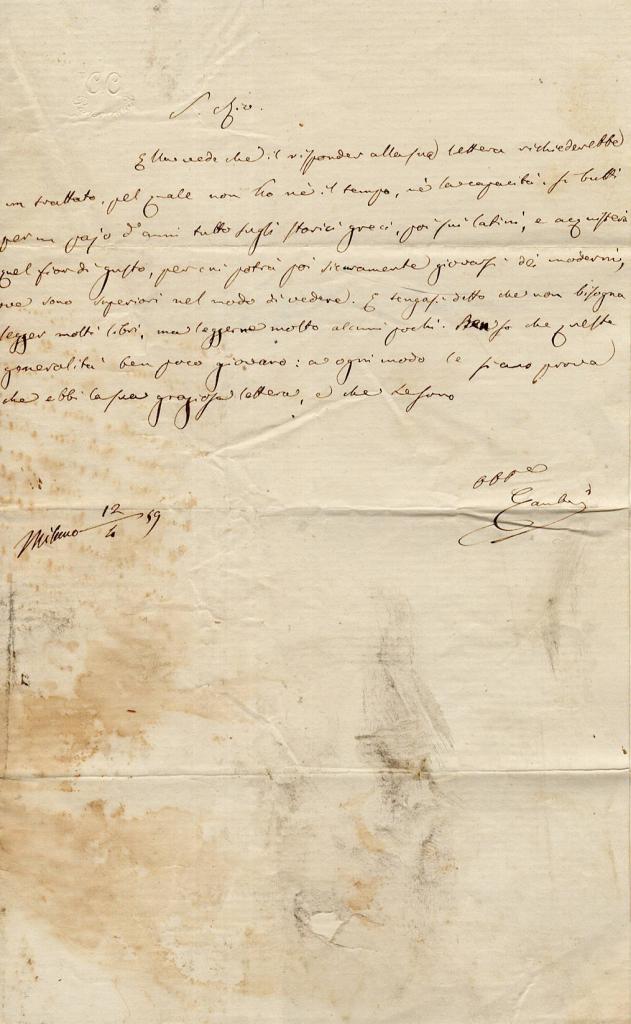 CC
Ella vede che il risponder alla sua lettera richiederebbe
un trattato, pel quale non ho nè il tempo, nè la capacità. Si butti
per un pajo d'anni tutto sugli storici greci, poi sui latini, e acquisterà
quel fior di gusto, per cui potrà poi sicuramente giovarsi dei moderni,
che sono superiori nel modo di vedere. E tengasi detto che non bisogna
legger molti libri, ma leggerne molto alcuni pochi. Ben so che queste
generalità ben poco giovano: a ogni modo le siano prova
che ebbi la sua graziosa lettera, e che Le sono
Milano 12/4 59